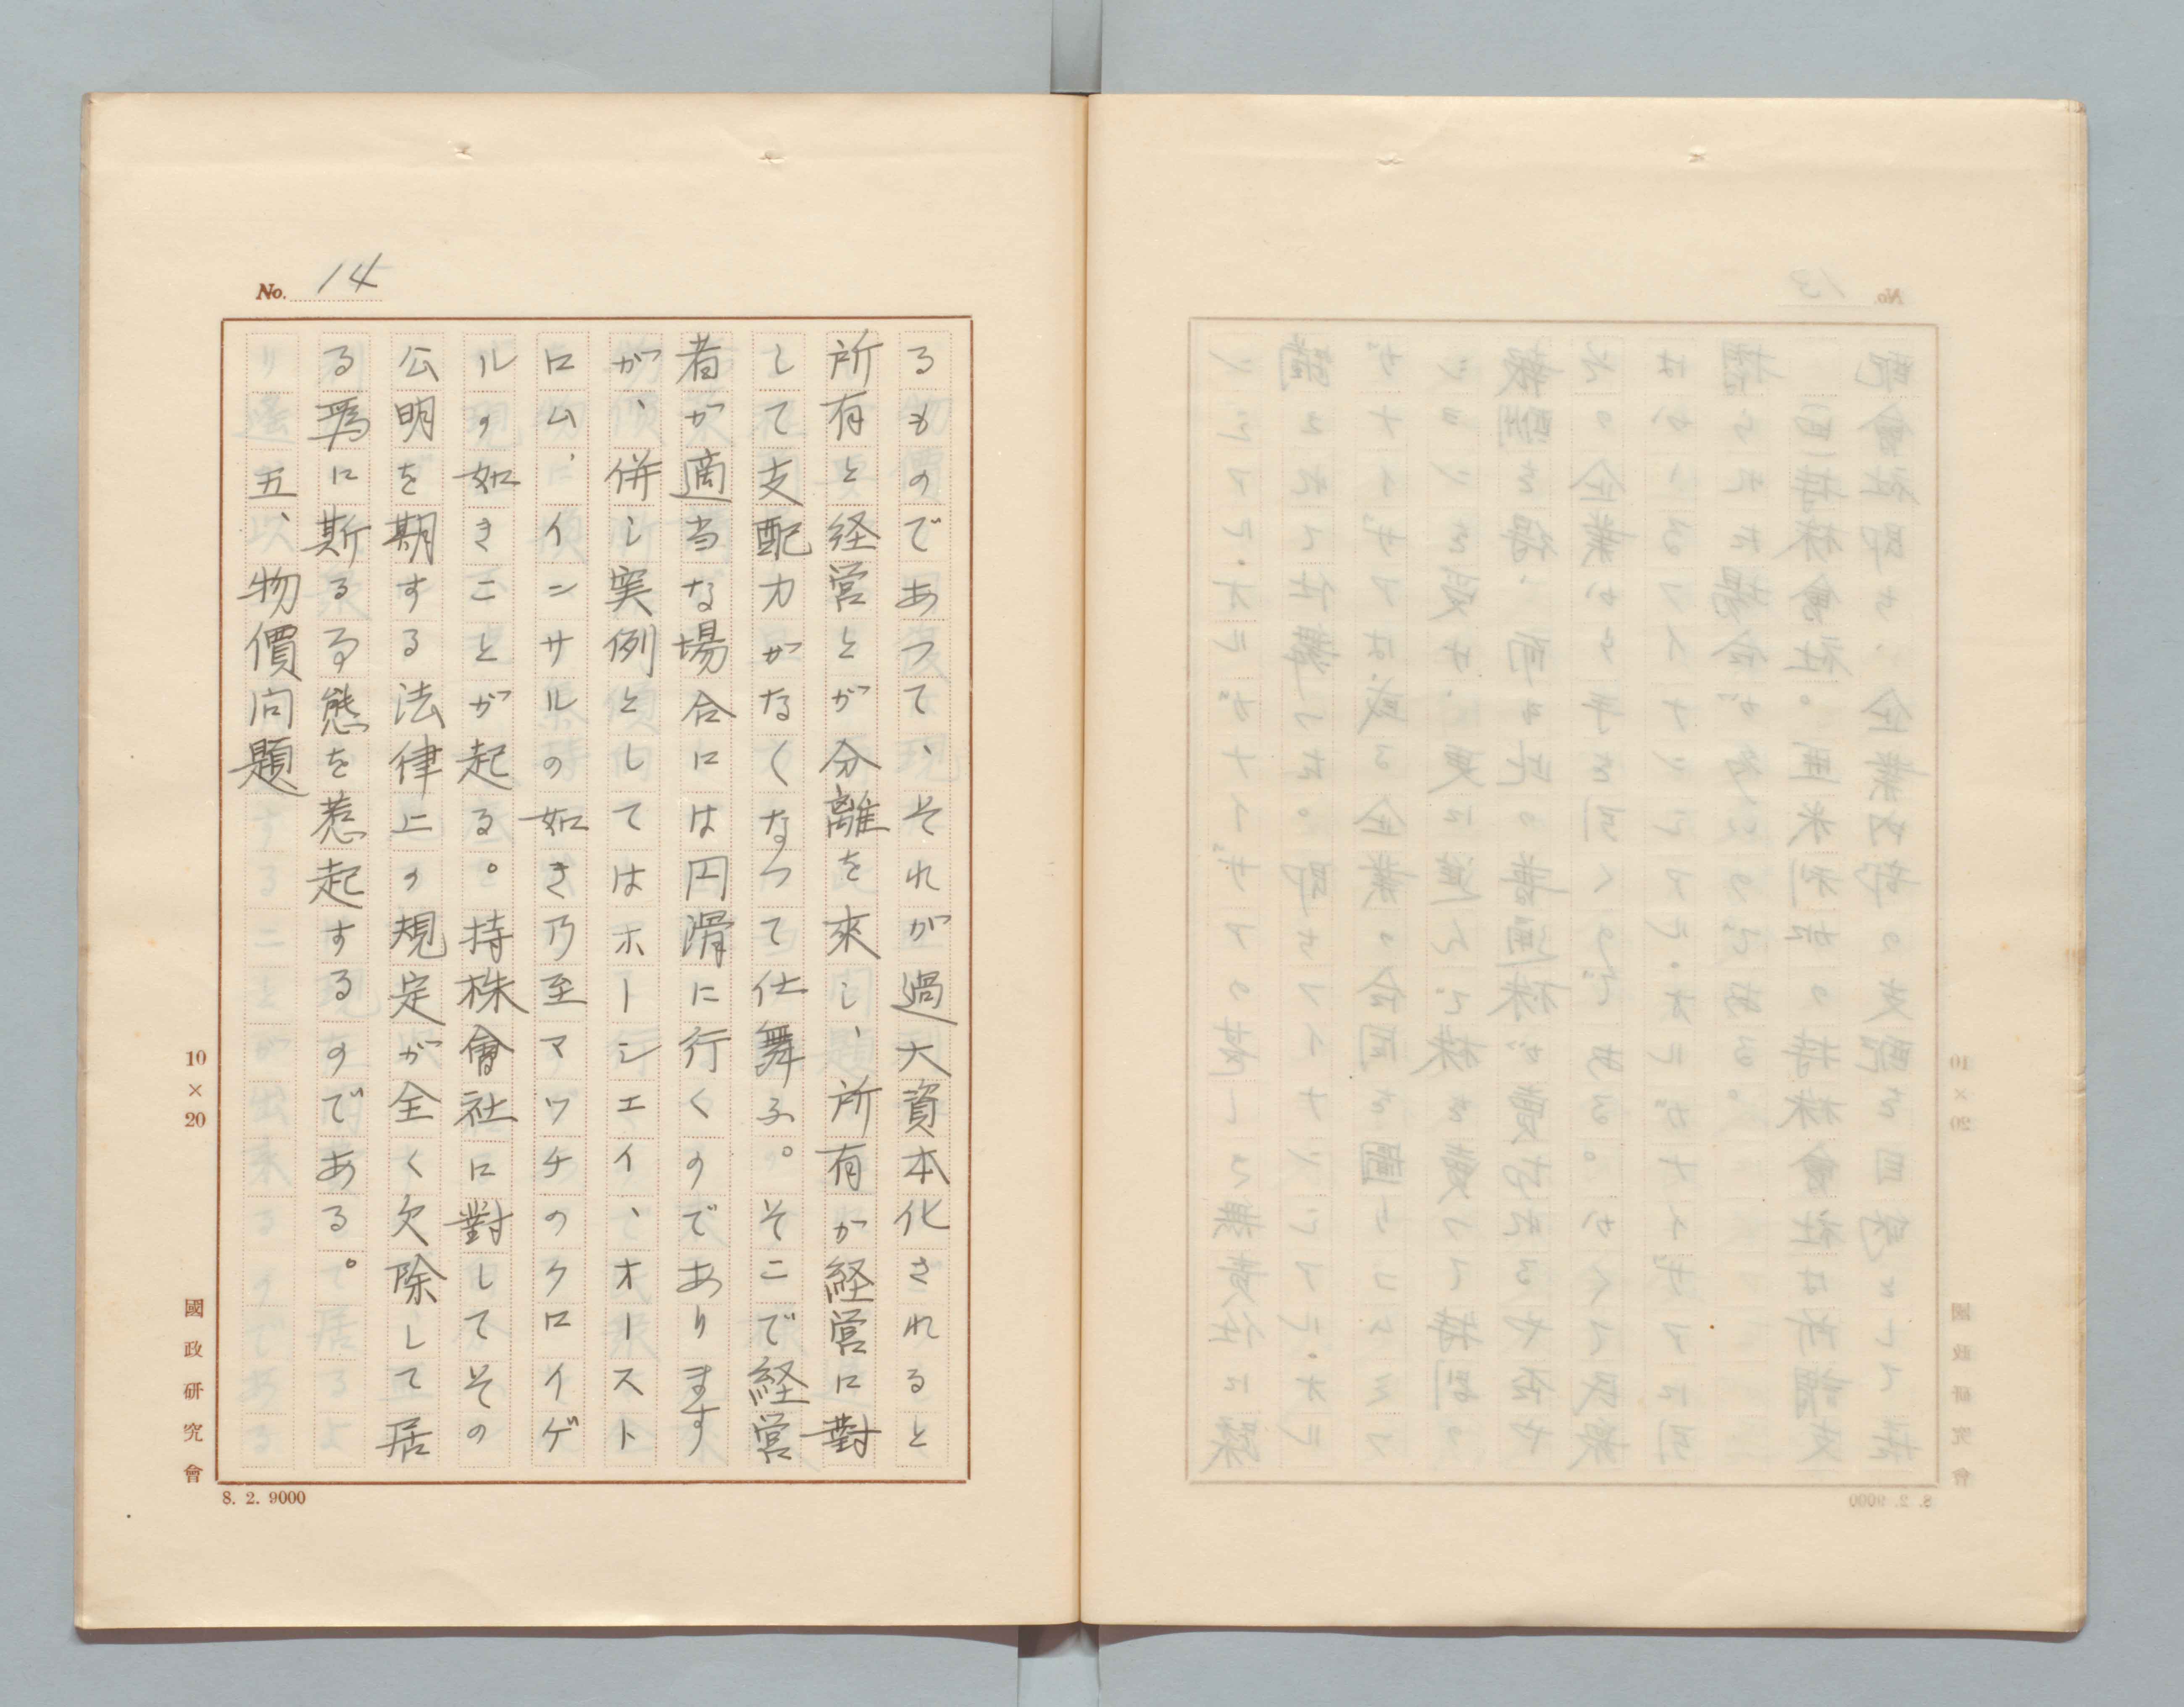 No. 14
るものであつて、それが過大資本化されると
所有と経営とが分離を來し、所有が経営に對
して支配力がなくなつて仕舞ふ。そこで経営
者が適当な場合には円滑に行くのであります
が、併し実例としてはホーシエイ、オースト
ロム、インサルの如き乃至マツチのクロイゲ
ルの如きことが起る。持株會社に對してその
公明を期する法律上の規定が全く欠除して居
る爲に斯るる態を惹起するのである。
五、物價问題
10×20
國政研究會
8. 2. 9000